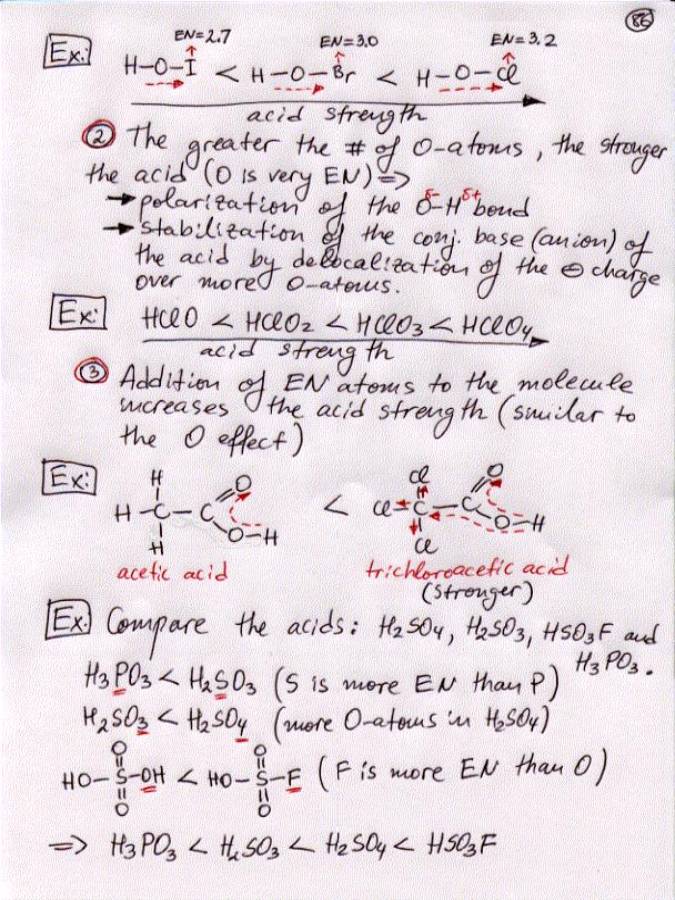 86
EN=2.7 EN=3.0 EN=3.2
Ex: H-O-I < H-O-Br < H-O-Cl
acid strength
② The greater the # of O-atoms, the stronger
the acid (O is very EN) =>
→ polarization of the O-H bond δ- δ+
→ stabilization of the conj. base (anion) of
the acid by delocalization of the ⊖ charge
over more O-atoms.
Ex: HClO < HClO₂ < HClO₃ < HClO₄
acid strength
③ Addition of EN atoms to the molecule
increases the acid strength (similar to
the O effect)
Ex:
H Cl
O O
H-C-C < Cl-C-C
O-H O-H
H Cl
acetic acid trichloroacetic acid
(stronger)
Ex: Compare the acids: H₂SO₄, H₂SO₃, HSO₃F and
H₃PO₃.
H₃PO₃ < H₂SO₃ (S is more EN than P)
H₂SO₃ < H₂SO₄ (more O-atoms in H₂SO₄)
O O
HO-S-OH < HO-S-F (F is more EN than O)
O O
=> H₃PO₃ < H₂SO₃ < H₂SO₄ < HSO₃F